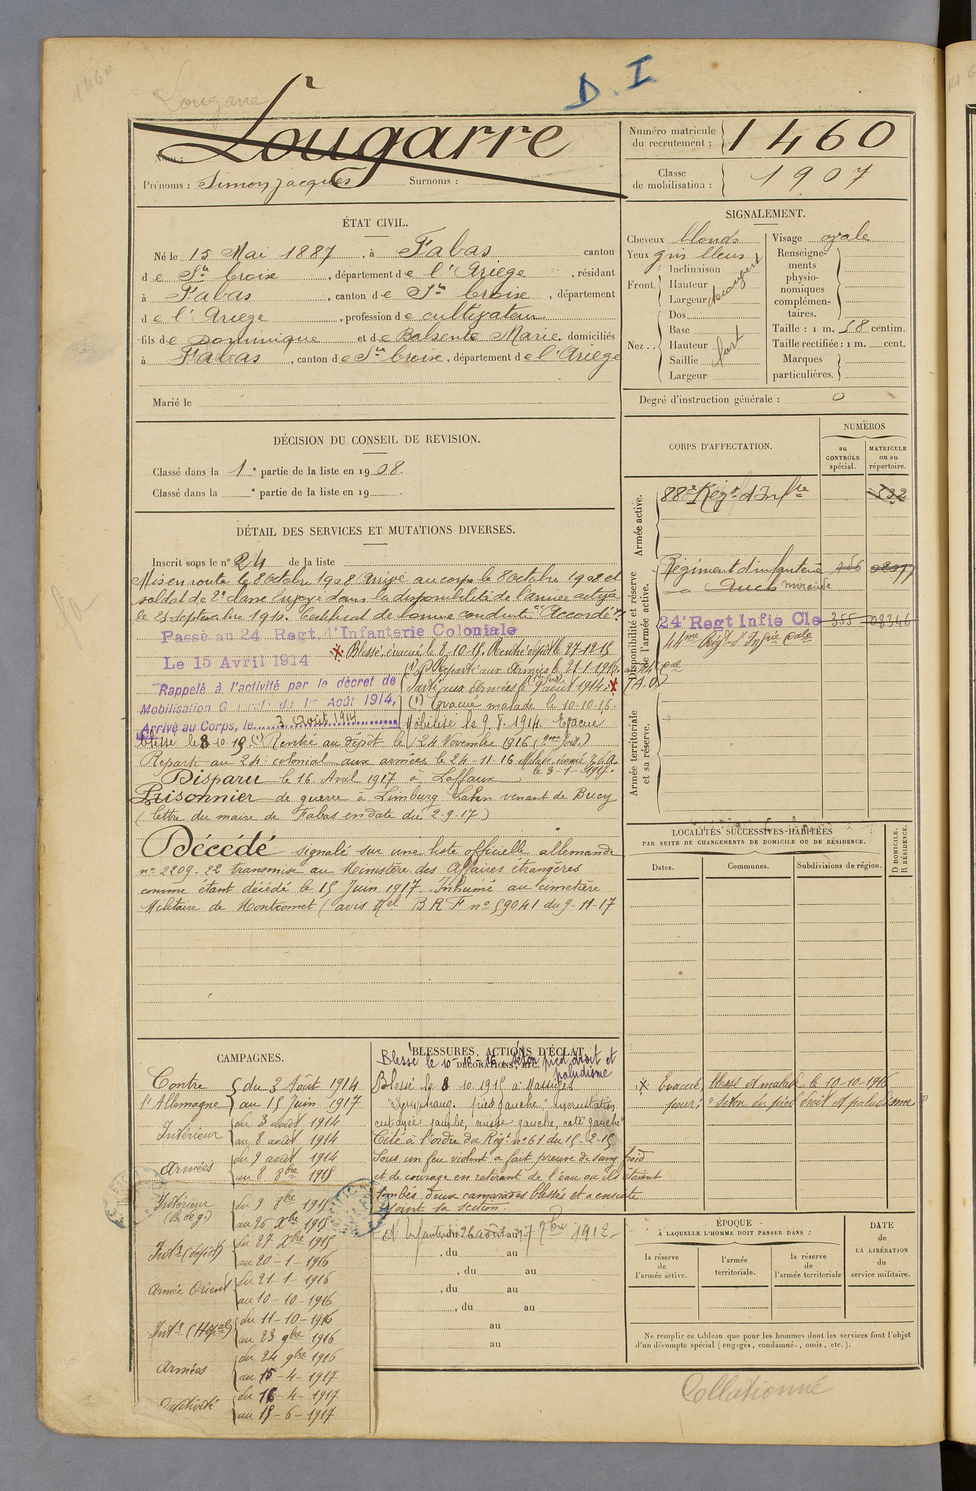 1460
Lougarre
D. I
Lougarre
Nom :
Prénoms : Simon Jacques Surnoms :
Numéro matricule du recrutement : 1460
Classe de mobilisation : 1907
ÉTAT CIVIL.
Né le 15 Mai 1887, à Fabas, canton
de Ste Croix, département de l'Ariège, résidant
à Fabas, canton de Ste Croix, département
de l'Ariège, profession de cultivateur
fils de Dominique et de Balsente Marie, domiciliés
à Fabas, canton de Ste Croix, département de l'Ariège
Marié le
SIGNALEMENT.
Cheveux blonds
Yeux gris bleus
Front. Inclinaison
Hauteur
Largeur
Nez. Dos
Base
Hauteur
Saillie fort
Largeur
Visage ovale
Renseignements physionomiques complémentaires.
Taille : 1 m. 58 centim.
Taille rectifiée : 1 m. cent.
Marques particulières.
Degré d'instruction générale : 0
DÉCISION DU CONSEIL DE REVISION.
Classé dans la 1e partie de la liste en 1908.
Classé dans la e partie de la liste en 19
DÉTAIL DES SERVICES ET MUTATIONS DIVERSES.
Inscrit sous le n° 24 de la liste
Mis en route le 8 Octobre 1908 Arrivé au corps le 8 octobre 1908 et
soldat de 2e classe Envoyé dans la disponibilité de l'armée active
le 25 septembre 1910. Certificat de bonne conduite "Accordé"
Passé au 24 Regt. d'Infanterie Coloniale
Le 15 Avril 1914
Blessé, évacué le 8.10.15. Rentré dépôt le 27.12.15.
(1) Reparti aux Armées le 21.1.1916.
Rappelé à l'activité par le décret de
Mobilisation Générale du 1er Août 1914,
Parti aux Armées le 9 août 1914.
(1) Evacué malade le 10-10-16.
Arrivé au Corps, le 3 Août 1914
Mobilisé le 9.8.1914. Evacué
blessé le 8 10 15 (1) Rentré au dépôt le 24 Novembre 1916 (2me fois)
Reparti au 24 colonial aux armées le 24-11-16
le 3-1-1917.
Disparu le 16 Avril 1917 à Laffaux
Prisonnier de guerre à Limburg Lahn venant de Bucy
(lettre du maire de Fabas en date du 2-9-17)
Décédé signalé sur une liste officielle allemande
n° 2209.22 transmise au Ministère des Affaires étrangères
comme étant décédé le 15 Juin 1917 Inhumé au cimetère
Militaire de Montcornet (avis Mel B R F n° 59041 du 9-11-17
CORPS D'AFFECTATION.
NUMÉROS
au CONTRÔLE spécial.
MATRICULE ou au répertoire.
Armée active.
88e Régt d'Inftie 532
Disponibilité et réserve de l'armée active.
Régiment d'infanterie
à Auch mirande
24e Regt Infie Cle 355 08346
44me Régt d'Infrie Cale
Armée territoriale et sa réserve.
LOCALITÉS SUCCESSIVES HABITÉES
PAR SUITE DE CHANGEMENTS DE DOMICILE OU DE RÉSIDENCE.
Dates.
Communes.
Subdivisions de région.
D DOMICILE.
R RÉSIDENCE.
Evacué, blessé et malade le 10-10-1916
pour : "séton du pied droit et paludisme"
CAMPAGNES.
Contre l'Allemagne du 3 Août 1914
au 15 Juin 1917
Intérieur du 3 août 1914
au 8 août 1914
Armées du 9 août 1914
au 8 8bre 1915
Intérieur du 9 8bre 1915
au 26 Xbre 1915
Intr (dépôt) du 27 Xbre 1915
au 20-1-1916
Armée Orient du 21-1-1916
au 10-10-1916
Intr (Hôpal) du 11-10-1916
au 23 9bre 1916
Armées du 24 9bre 1916
au 15-4-1917
Captivité du 16-4-1917
au 15-6-1917
BLESSURES, ACTIONS D'ÉCLAT,
DÉCORATIONS, ETC.
Blessé le 10-10-16 séton pied droit et
paludisme
Blessé le 8 10 1915 à Massiges
pied gauche" incrustations
jambe, cuisse gauche, côté gauche
Cité à l'ordre du Régt n° 61 du 15-2-15
Sous un feu violent a fait preuve de sang froid
et de courage en retirant de l'eau où ils étaient
tombés deux camarades blessés et a ensuite
rejoint sa section.
du 26 août au 17 7bre 1912
, du au
, du au
, du au
au
au
ÉPOQUE
À LAQUELLE L'HOMME DOIT PASSER DANS :
la réserve de l'armée active.
l'armée territoriale.
la réserve de l'armée territoriale
DATE de LA LIBÉRATION du service militaire.
Ne remplir ce tableau que pour les hommes dont les services font l'objet
d'un décompte spécial (engagés, condamnés, omis, etc.).
Collationné